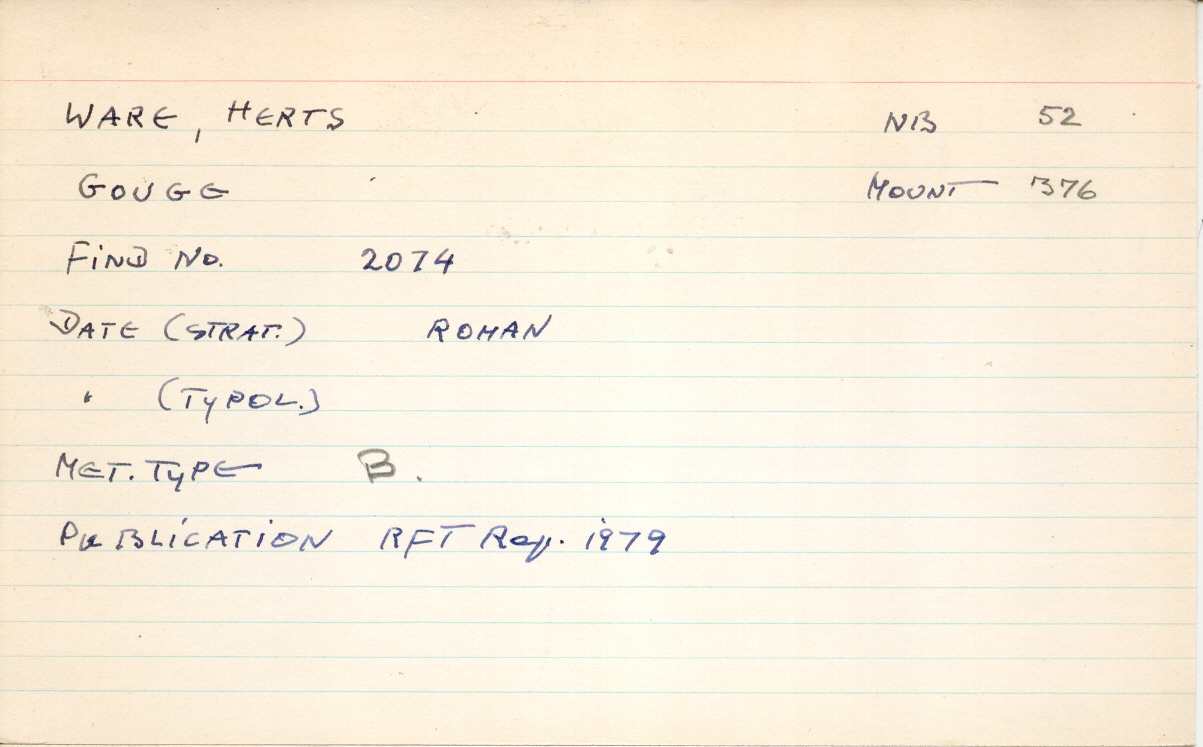 WARE, HERTS NB 52
GOUGE MOUNT 376
FIND No. 2074
DATE (STRAT.) ROMAN
" (TYPOL.)
MET. TYPE B.
PUBLICATION RFT Rep. 1979